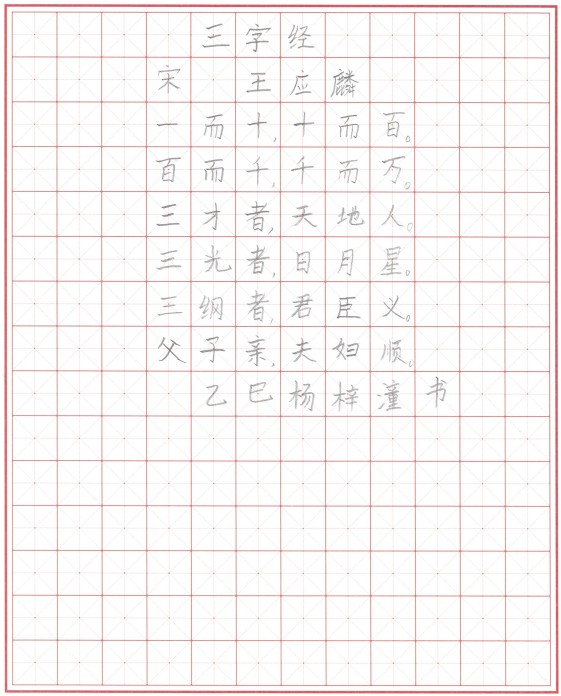 三字经
宋 王应麟
一而十,十而百。
百而千,千而万。
三才者,天地人。
三光者,日月星。
三纲者,君臣义。
父子亲,夫妇顺。
乙巳杨梓潼书